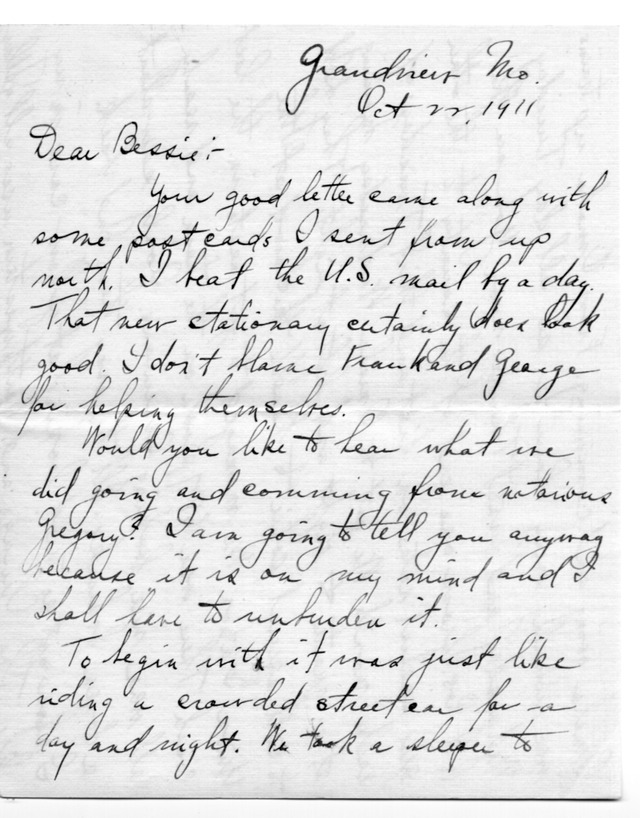 Grandview Mo.
Oct 22, 1911
Dear Bessie:-
Your good letter came along with
some postcards I sent from up
north. I beat the U.S. mail by a day.
That new stationary certainly does look
good. I don't blame Frank and George
for helping themselves.
Would you like to hear what we
did going and comming from notorious
Gregory? I am going to tell you anyway
because it is on my mind and I
shall have to unburden it.
To begin with it was just like
riding a crowded streetcar for a
day and night. We took a sleeper to